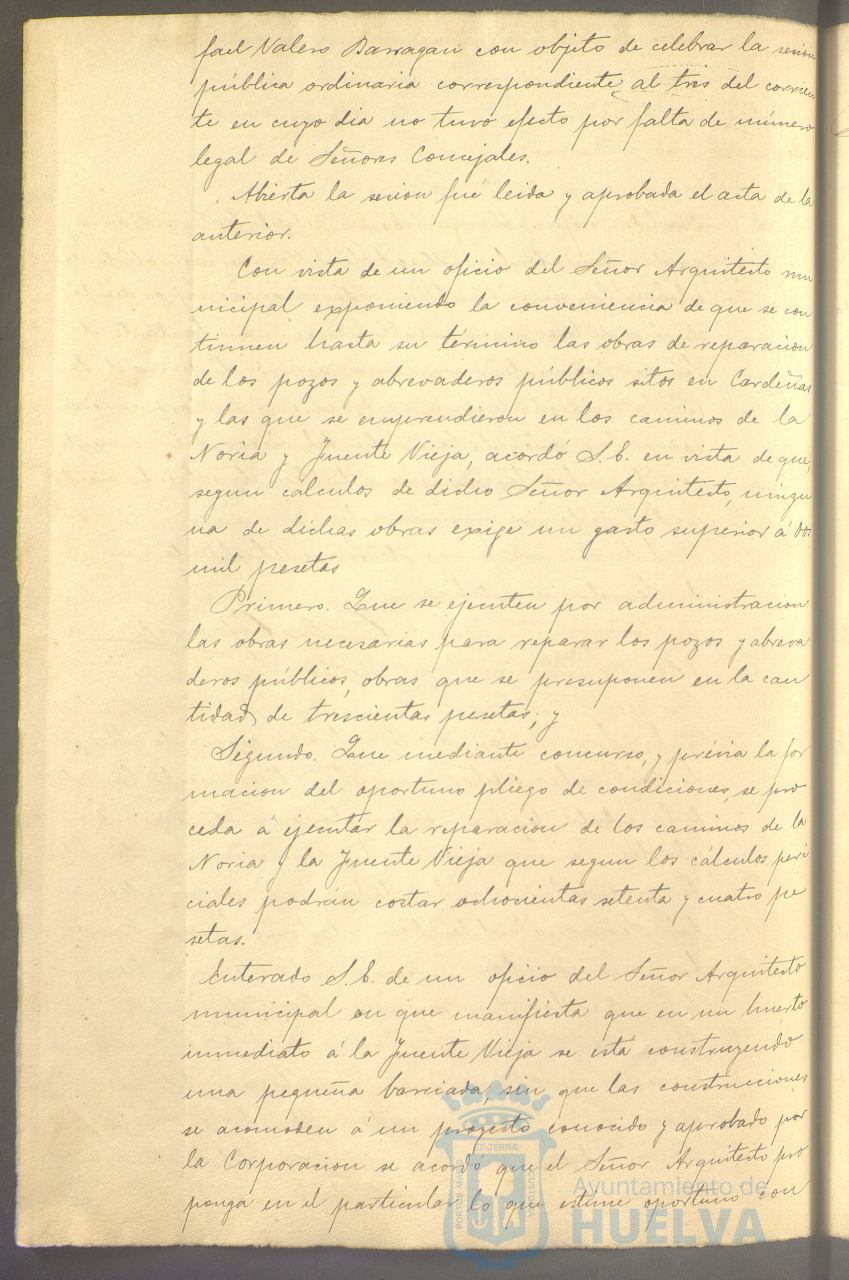 fael Valero Barragan con objeto de celebrar la sesion
pública ordinaria correspondiente al tres del corrien
te en cuyo dia no tuvo efecto por falta de número
legal de Señores Concejales.
Abierta la sesion fué leida y aprobada el acta de la
anterior.
Con vista de un oficio del Señor Arquitecto mu
nicipal exponiendo la conveniencia de que se con
tinuen hasta su término las obras de reparacion
de los pozos y abrevaderos públicos sitos en Cardeñas
y las que se emprendieron en los caminos de la
Noria y Fuente Vieja, acordó S.E. en vista de que,
segun cálculos de dicho Señor Arquitecto, ningu
na de dichas obras exige un gasto superior á dos
mil pesetas
Primero. Que se ejecuten por administracion
las obras necesarias para reparar los pozos y abreva
deros públicos, obras que se presuponen en la can
tidad de trescientas pesetas; y
Segundo. Que mediante concurso, y prévia la for
macion del oportuno pliego de condiciones, se pro
ceda á ejecutar la reparacion de los caminos de la
Noria y la Fuente Vieja que segun los cálculos peri
ciales podrán costar ochocientas setenta y cuatro pe
setas.
Enterado S.E. de un oficio del Señor Arquitecto
municipal en que manifiesta que en un huerto
inmediato á la Fuente Vieja se está construyendo
una pequeña barriada, sin que las construcciones
se acomoden á un proyecto conocido y aprobado por
la Corporacion se acordó que el Señor Arquitecto pro
ponga en el particular lo que estime oportuno con
ET TERRÆ
PORTUS MARIS
CUSTODIA
Ayuntamiento de
HUELVA